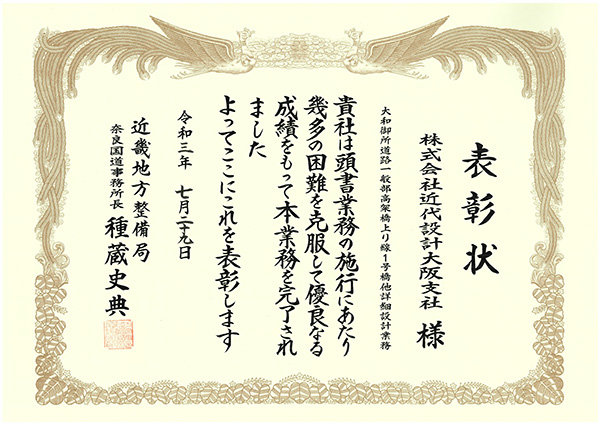 表彰状
株式会社近代設計大阪支社 様
大和御所道路一般部高架橋上り線1号橋他詳細設計業務
貴社は頭書業務の施行にあたり
幾多の困難を克服して優良なる
成績をもって本業務を完了され
ました
よってここにこれを表彰します
令和三年 七月二十九日
近畿地方整備局
奈良国道事務所長 種蔵史典